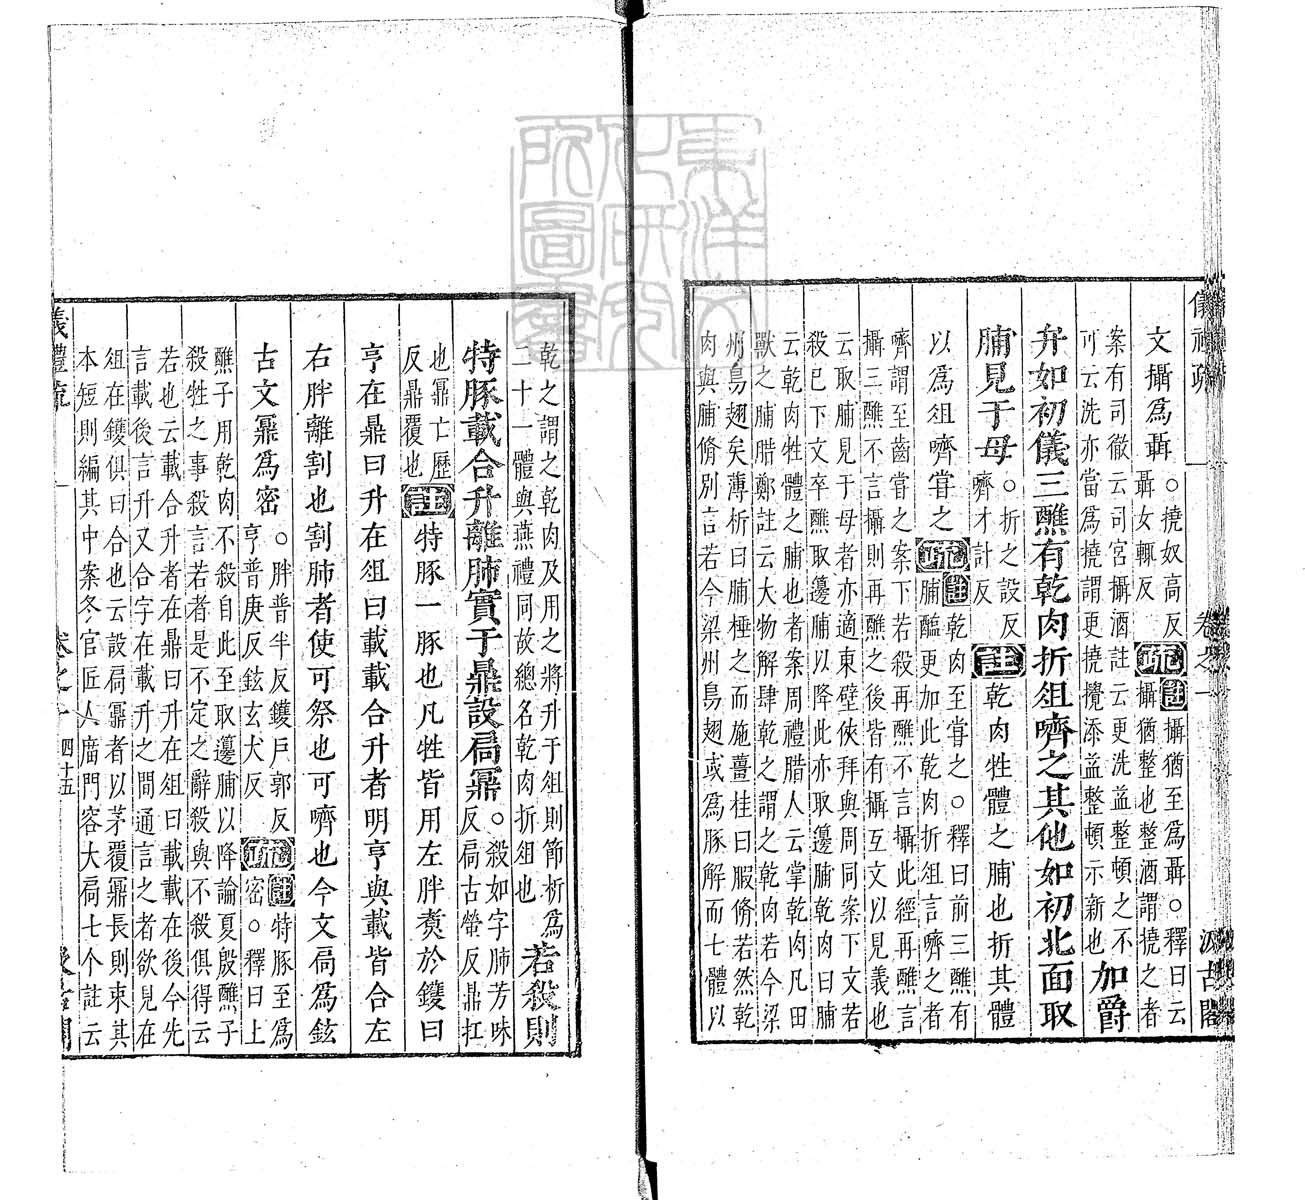 儀禮疏 卷之一 汲古閣
文攝爲聶
○撓奴高反
聶女輒反
疏
註攝猶至爲聶○釋曰云
攝猶整也整酒謂撓之者
案有司徹云司宮攝酒註云更洗益整頓之不
可云洗亦當爲撓謂更撓攪添益整頓示新也
加爵
弁如初儀三醮有乾肉折俎嚌之其他如初北面取
脯見于母
○折之設反
嚌才計反
註
乾肉牲體之脯也折其體
以爲俎嚌嘗之
疏
註乾肉至嘗之○釋曰前三醮有
脯醢更加此乾肉折俎言嚌之者
嚌謂至齒嘗之案下若殺再醮不言攝此經再醮言
攝三醮不言攝則再醮之後皆有攝互文以見義也
云取脯見于母者亦適東壁俠拜與周同案下文若
殺已下文卒醮取籩脯以降此亦取籩脯乾肉曰脯
云乾肉牲體之脯也者案周禮腊人云掌乾肉凡田
獸之脯腊鄭註云大物解肆乾之謂之乾肉若今梁
州烏翅矣薄析曰脯棰之而施薑桂曰腶脩若然乾
肉與脯脩別言若今梁州烏翅或爲豚解而七體以
乾之謂之乾肉及用之將升于俎則節折爲
二十一體與燕禮同故總名乾肉折俎也
若殺則
特豚載合升離肺實于鼎設扃鼏
○殺如字肺芳味
反扃古螢反鼎扛
也鼏亡歷
反鼎覆也
註
特豚一豚也凡牲皆用左胖煑於鑊曰
亨在鼎曰升在俎曰載載合升者明亨與載皆合左
右胖離割也割肺者使可祭也可嚌也今文扃爲鉉
古文鼏爲密
○胖普半反鑊戸郭反
亨普庚反鉉玄犬反
疏
註特豚至爲
密○釋曰上
醮子用乾肉不殺自此至取籩脯以降論夏殷醮子
殺牲之事殺言若者是不定之辭殺與不殺俱得云
若也云載合升者在鼎曰升在俎曰載載在後今先
言載後言升又合字在載升之間通言之者欲見在
俎在鑊俱曰合也云設扃鼏者以茅覆鼏長則束其
本短則編其中案冬官匠人廟門容大扃七个註云
儀禮疏 卷之一 四十五 汲古閣